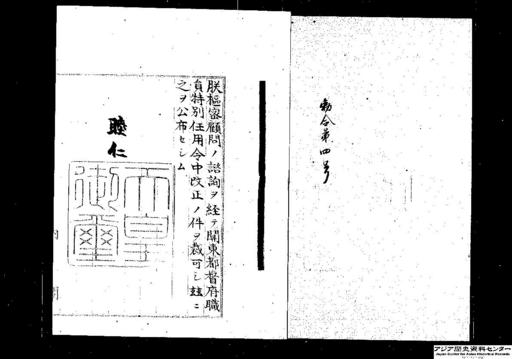 勅令第四号
朕枢密顧問ノ諮詢ヲ経テ関東都督府職
員特別任用令中改正ノ件ヲ裁可シ玆ニ
之ヲ公布セシム
睦仁
天皇
御璽
アジア歴史資料センター
Japan Center for Asian Historical Records